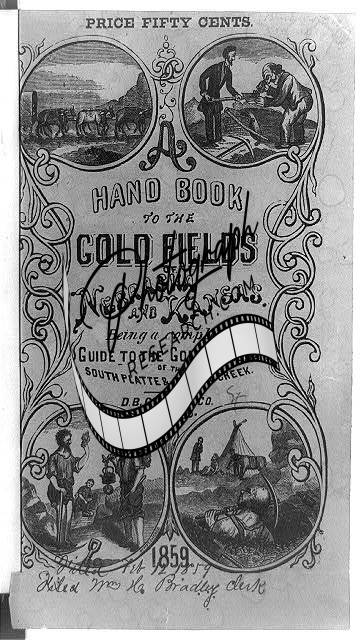 PRICE FIFTY CENTS.
A
HAND BOOK
TO THE
GOLD FIELDS
Photograph
AND KANSAS.
Being a
GUIDE TO THE
OF THE
SOUTH PLATTE & CREEK.
D.B. CO.
1859
Filed 1859
Wm H. Bradley, Clerk